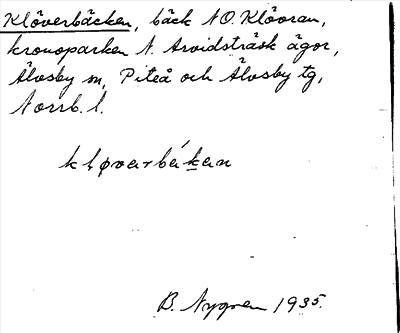 Klöverbäcken, bäck NO. Klöoran,
kronoparken N. Arvidsträsk ägor,
Älvsby sn, Piteå och Älvsby tg,
Norrb. l.
kløvarbákan
B. Nygren 1935.